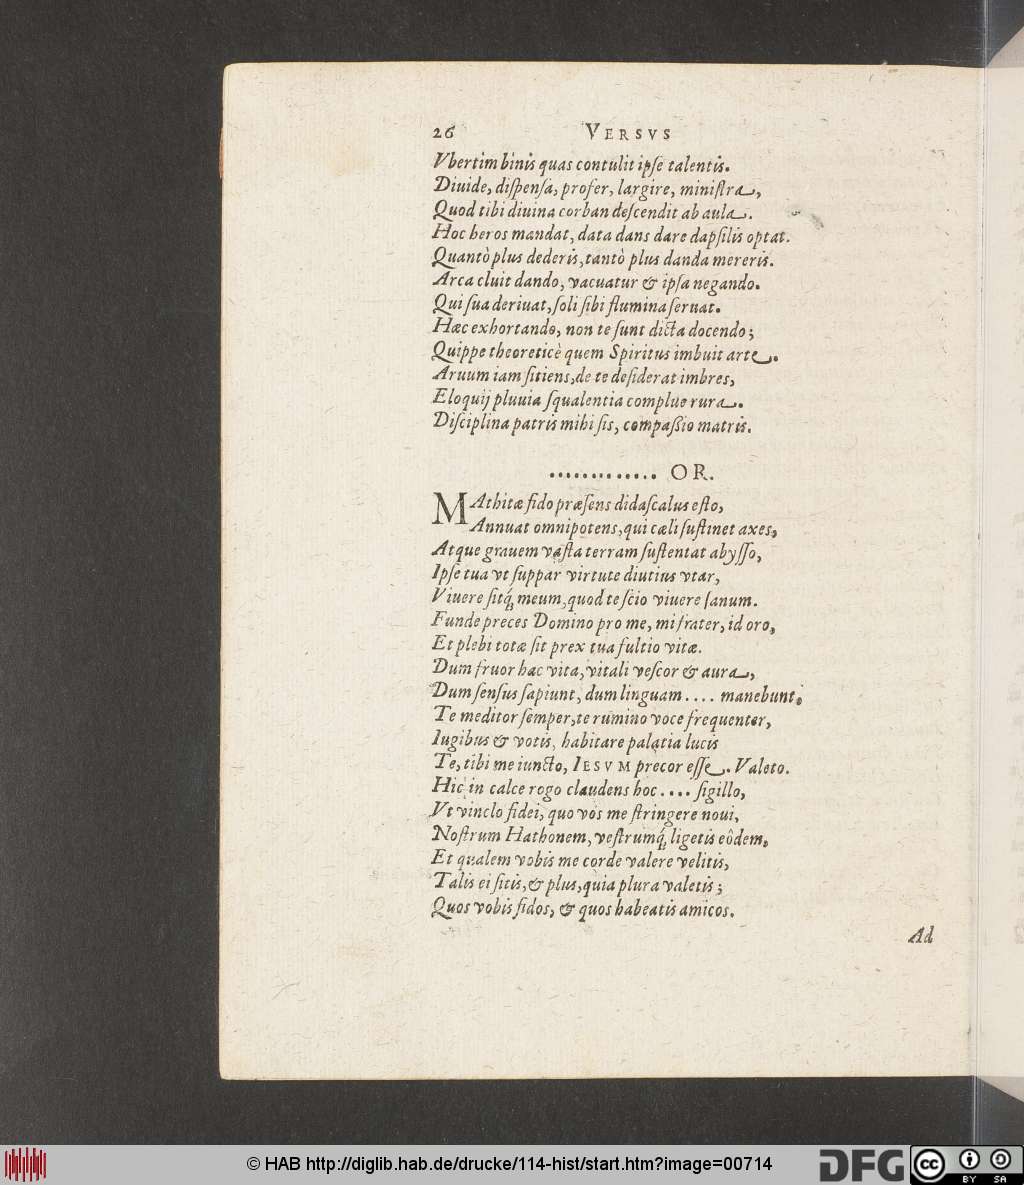 26 VERSVS
Vbertim binis quas contulit ipſe talentis.
Diuide, diſpenſa, profer, largire, miniſtra,
Quod tibi diuina corban deſcendit ab aula.
Hoc heros mandat, data dans dare dapſilis optat.
Quantò plus dederis, tantò plus danda mereris.
Arca cluit dando, vacuatur & ipſa negando.
Qui ſua deriuat, ſoli ſibi flumina ſeruat.
Hæc exhortando, non te ſunt dicta docendo;
Quippe theoreticè quem Spiritus imbuit arte.
Aruum iam ſitiens, de te deſiderat imbres,
Eloquij pluuia ſqualentia complue rura.
Diſciplina patris mihi ſis, compaſſio matris.
............. OR.
MAthitæ fido præſens didaſcalus eſto,
Annuat omnipotens, qui cæli ſuſtinet axes,
Atque grauem vaſta terram ſuſtentat abyſſo,
Ipſe tua vt ſuppar virtute diutius vtar,
Viuere ſitq́; meum, quod te ſcio viuere ſanum.
Funde preces Domino pro me, mi frater, id oro,
Et plebi totæ ſit prex tua fultio vitæ.
Dum fruor hac vita, vitali veſcor & aura,
Dum ſenſus ſapiunt, dum linguam .... manebunt,
Te meditor ſemper, te rumino voce frequenter,
Iugibus & votis, habitare palatia lucis
Te, tibi me iuncto, IESVM precor eſſe. Valeto.
Hic in calce rogo claudens hoc .... ſigillo,
Vt vinclo fidei, quo vos me ſtringere noui,
Noſtrum Hathonem, veſtrumq́; ligetis eôdem,
Et qualem vobis me corde valere velitis,
Talis ei ſitis, & plus, quia plura valetis;
Quos vobis fidos, & quos habeatis amicos.
Ad
© HAB http://diglib.hab.de/drucke/114-hist/start.htm?image=00714
DFG
cc BY SA